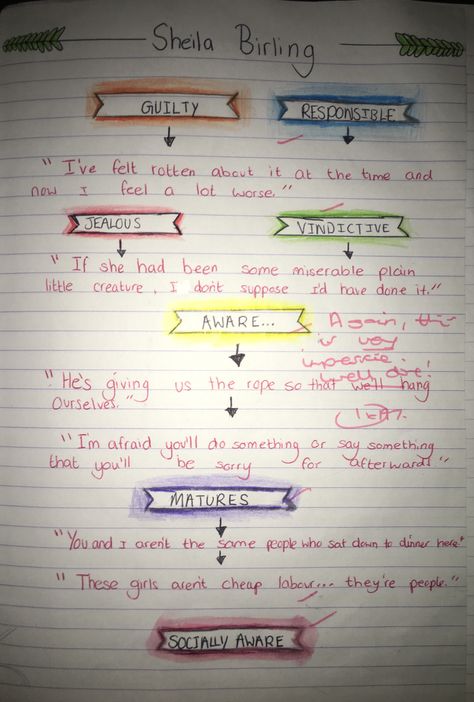 Sheila Birling
GUILTY
RESPONSIBLE
"I've felt rotten about it at the time and
now I feel a lot worse."
JEALOUS
VINDICTIVE
"If she had been some miserable plain
little creature, I don't suppose I'd have done it."
AWARE...
Again, this
is very
impressive
well done!
"He's giving us the rope so that we'll hang
Ourselves."
"I'm afraid you'll do something or say something
that you'll be sorry for afterwards"
MATURES
"You and I aren't the same people who sat down to dinner here"
"These girls aren't cheap labour... they're people."
SOCIALLY AWARE